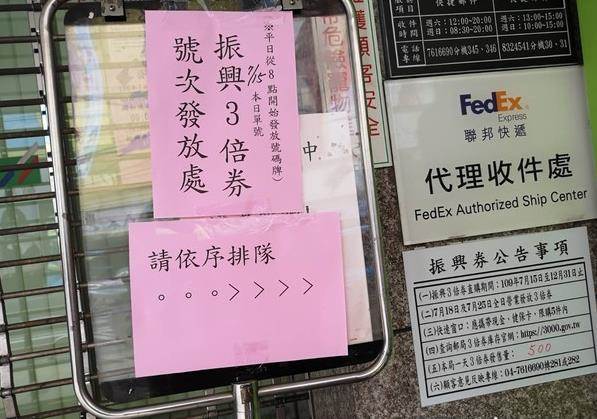 ※平日從8點開始發放號碼牌)
振興3倍券
7/15 本日單號
號次發放處
請依序排隊
。。。>>>>
中
護顧客安全
帶危險寵物
項目
收件時間
週六:12:00-20:00
週日:08:30-20:00
週六:10:00-15:00
週日:13:00-17:00
電話專線
7616690分機345、346
8324541分機30、31
FedEx
Express
聯邦快遞
代理收件處
FedEx Authorized Ship Center
振興券公告事項
(一)振興3倍券直購期間:109年7月15日至12月31日止
(二)7月18日及7月25日全日營業發放3倍券
(三)快速窗口:應攜帶現金、健保卡,限購5件內
(四)查詢郵局3倍券庫存官網:https://3000.gov.tw
(五)本局一天3倍券發售量: 500
(六)顧客意見反映專線:04-7616690轉281或282